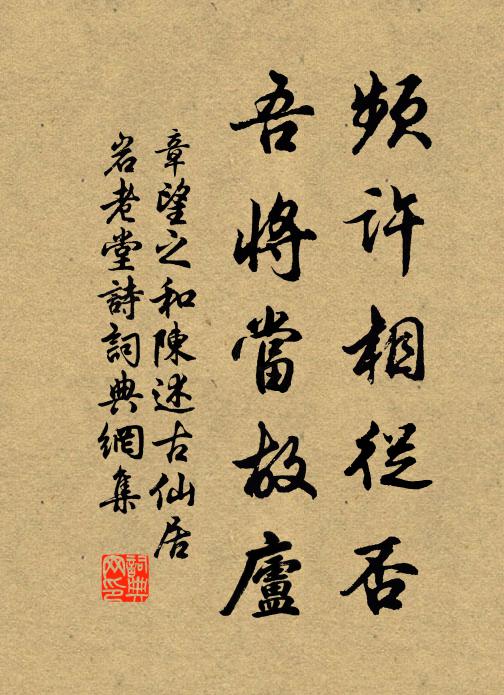 頻許相從否
吾將當故廬
章望之和陳述古仙居
岩老堂詩詞典網集
詞典
网印